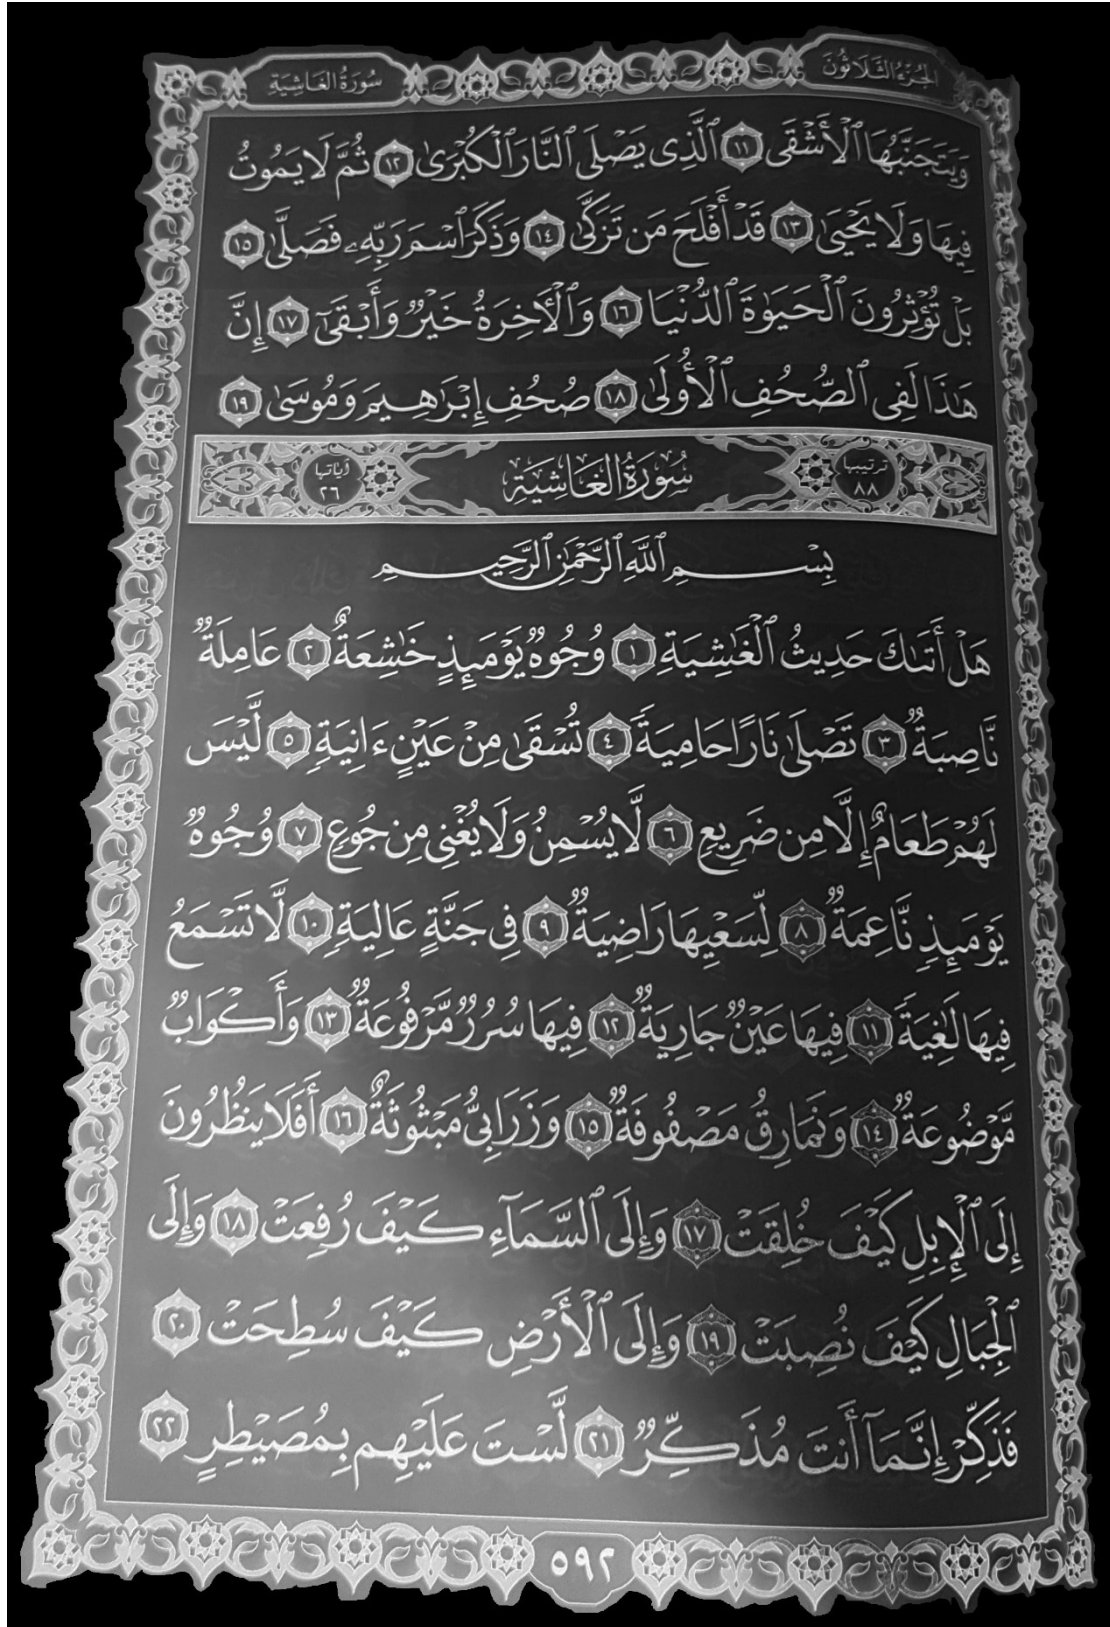 سُورَةُ الغَاشِيَةِ الجُزْءُ الثَّلَاثُونَ
وَيَتَجَنَّبُهَا ٱلْأَشْقَى ١١ ٱلَّذِى يَصْلَى ٱلنَّارَ ٱلْكُبْرَىٰ ١٢ ثُمَّ لَا يَمُوتُ
فِيهَا وَلَا يَحْيَىٰ ١٣ قَدْ أَفْلَحَ مَن تَزَكَّىٰ ١٤ وَذَكَرَ ٱسْمَ رَبِّهِۦ فَصَلَّىٰ ١٥
بَلْ تُؤْثِرُونَ ٱلْحَيَوٰةَ ٱلدُّنْيَا ١٦ وَٱلْأَخِرَةُ خَيْرٌ وَأَبْقَىٰٓ ١٧ إِنَّ
هَٰذَا لَفِى ٱلصُّحُفِ ٱلْأُولَىٰ ١٨ صُحُفِ إِبْرَٰهِيمَ وَمُوسَىٰ ١٩
ترتيبها ٨٨ سُورَةُ الغَاشِيَةِ آياتها ٢٦
بِسْمِ ٱللَّهِ ٱلرَّحْمَٰنِ ٱلرَّحِيمِ
هَلْ أَتَىٰكَ حَدِيثُ ٱلْغَٰشِيَةِ ١ وُجُوهٌ يَوْمَئِذٍ خَٰشِعَةٌ ٢ عَامِلَةٌ
نَّاصِبَةٌ ٣ تَصْلَىٰ نَارًا حَامِيَةً ٤ تُسْقَىٰ مِنْ عَيْنٍ ءَانِيَةٍ ٥ لَّيْسَ
لَهُمْ طَعَامٌ إِلَّا مِن ضَرِيعٍ ٦ لَّا يُسْمِنُ وَلَا يُغْنِى مِن جُوعٍ ٧ وُجُوهٌ
يَوْمَئِذٍ نَّاعِمَةٌ ٨ لِّسَعْيِهَا رَاضِيَةٌ ٩ فِى جَنَّةٍ عَالِيَةٍ ١٠ لَّا تَسْمَعُ
فِيهَا لَٰغِيَةً ١١ فِيهَا عَيْنٌ جَارِيَةٌ ١٢ فِيهَا سُرُرٌ مَّرْفُوعَةٌ ١٣ وَأَكْوَابٌ
مَّوْضُوعَةٌ ١٤ وَنَمَارِقُ مَصْفُوفَةٌ ١٥ وَزَرَابِىُّ مَبْثُوثَةٌ ١٦ أَفَلَا يَنظُرُونَ
إِلَى ٱلْإِبِلِ كَيْفَ خُلِقَتْ ١٧ وَإِلَى ٱلسَّمَآءِ كَيْفَ رُفِعَتْ ١٨ وَإِلَى
ٱلْجِبَالِ كَيْفَ نُصِبَتْ ١٩ وَإِلَى ٱلْأَرْضِ كَيْفَ سُطِحَتْ ٢٠
فَذَكِّرْ إِنَّمَآ أَنتَ مُذَكِّرٌ ٢١ لَّسْتَ عَلَيْهِم بِمُصَيْطِرٍ ٢٢
٥٩٢